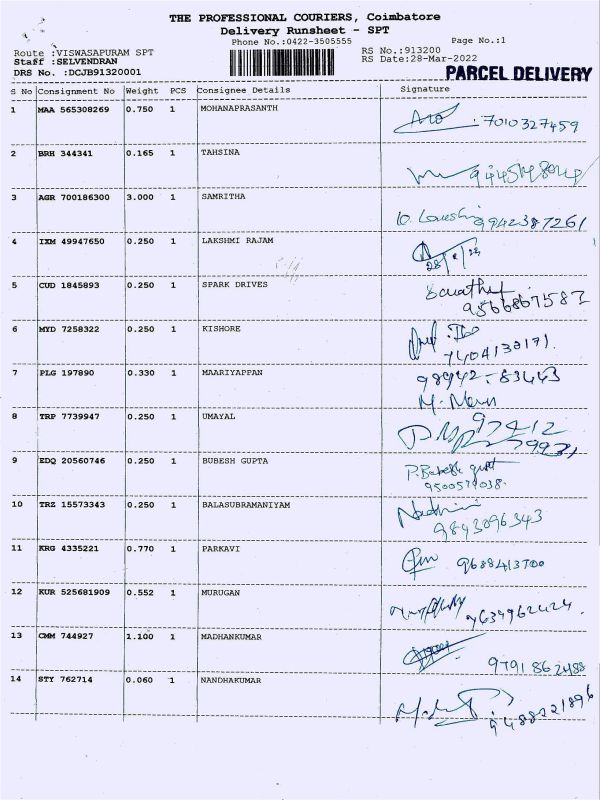 THE PROFESSIONAL COURIERS, Coimbatore
Delivery Runsheet - SPT
Phone No.:0422-3505555 Page No.:1
Route :VISWASAPURAM SPT RS No.:913200
Staff :SELVENDRAN RS Date:28-Mar-2022
DRS No. :DCJB91320001 PARCEL DELIVERY
S No Consignment No Weight PCS Consignee Details Signature
1 MAA 565308269 0.750 1 MOHANAPRASANTH 7010327459
2 BRH 344341 0.165 1 TAHSINA
3 AGR 700186300 3.000 1 SAMRITHA 9942387261
4 IXM 49947650 0.250 1 LAKSHMI RAJAM
5 CUD 1845893 0.250 1 SPARK DRIVES
9566867587
6 MYD 7258322 0.250 1 KISHORE
7404130171
7 PLG 197890 0.330 1 MAARIYAPPAN 98942-83443
8 TRP 7739947 0.250 1 UMAYAL 97412
9 EDQ 20560746 0.250 1 BUBESH GUPTA
10 TRZ 15573343 0.250 1 BALASUBRAMANIYAM
9843096343
11 KRG 4335221 0.770 1 PARKAVI 9688413700
12 KUR 525681909 0.552 1 MURUGAN 9634962424
13 CMM 744927 1.100 1 MADHANKUMAR
9791862488
14 STY 762714 0.060 1 NANDHAKUMAR
9488221896